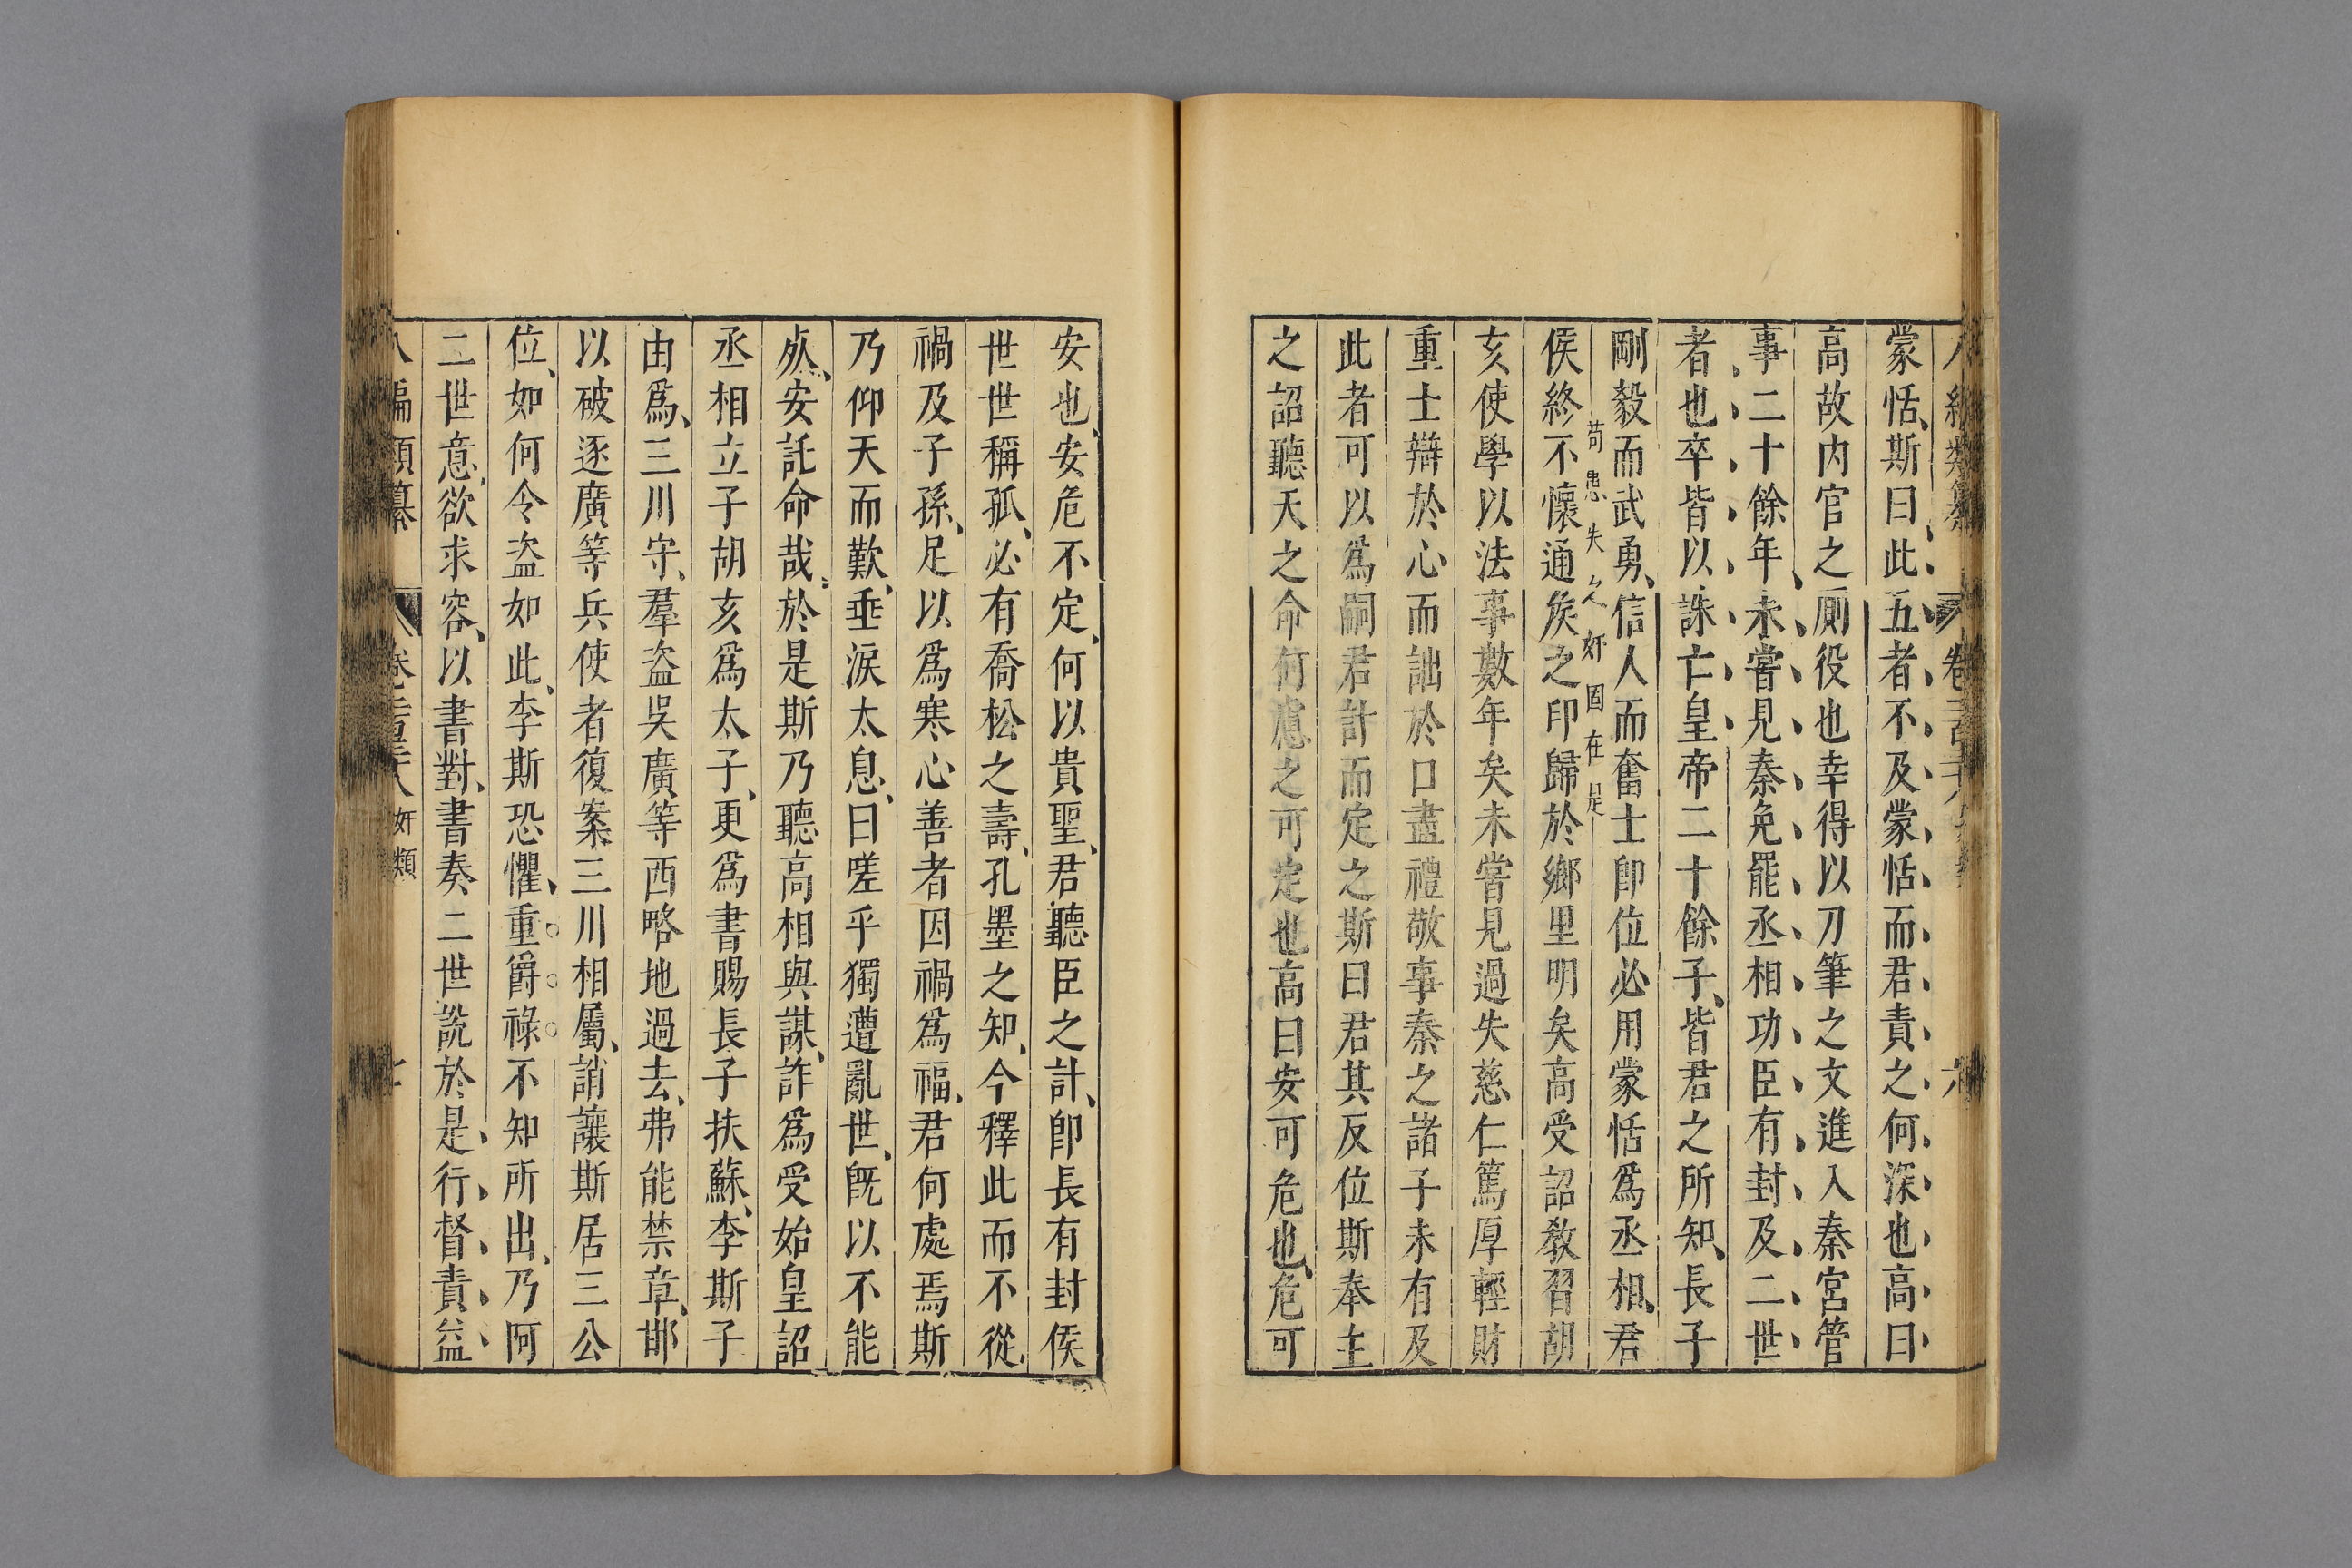 蒙恬斯曰此五者不及蒙恬而君責之何深也高曰
高故内官之厠役也幸得以刀筆之文進入秦宮管
事二十餘年未嘗見秦免罷丞相功臣有封及二世
者也卒皆以誅亡皇帝二十餘子皆君之所知長子
剛毅而武勇信人而奮士卽位必用蒙恬爲丞相君
苟患失之奸固在是
侯終不懷通侯之印歸於鄉里明矣高受詔敎習胡
亥使學以法事數年矣未嘗見過失慈仁篤厚輕財
重士辯於心而詘於口盡禮敬事秦之諸子未有及
此者可以爲嗣君計而定之斯曰君其反位斯奉主
之詔聽天之命何慮之可定也高曰安可危也危可
安也安危不定何以貴聖君聽臣之計卽長有封侯
世世稱孤必有喬松之壽孔墨之知今釋此而不從
禍及子孫足以爲寒心善者因禍爲福君何處焉斯
乃仰天而歎垂淚太息曰嗟乎獨遭亂世旣以不能
死安託命哉於是斯乃聽高相與謀詐爲受始皇詔
丞相立子胡亥爲太子更爲書賜長子扶蘇李斯子
由爲三川守羣盜吳廣等西略地過去弗能禁章邯
以破逐廣等兵使者復案三川相屬誚讓斯居三公
位如何令盜如此李斯恐懼重爵祿不知所出乃阿
二世意欲求容以書對書奏二世說於是行督責益
八編類纂 卷 奸類